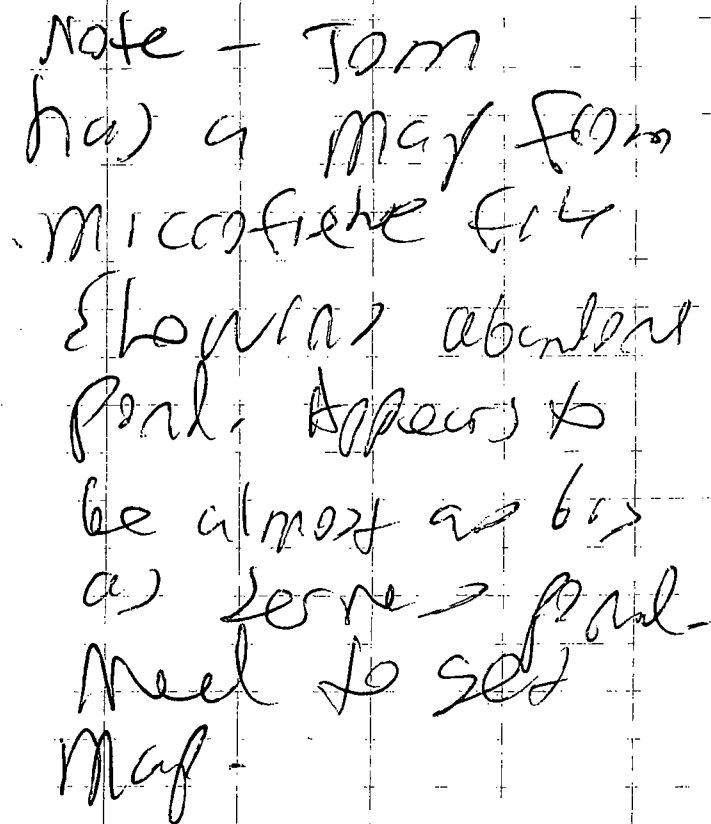 Note - Tom
has a map from
microfiche file
showing abandoned
pond. Appears to
be almost as big
as pond.
Need to get
map.